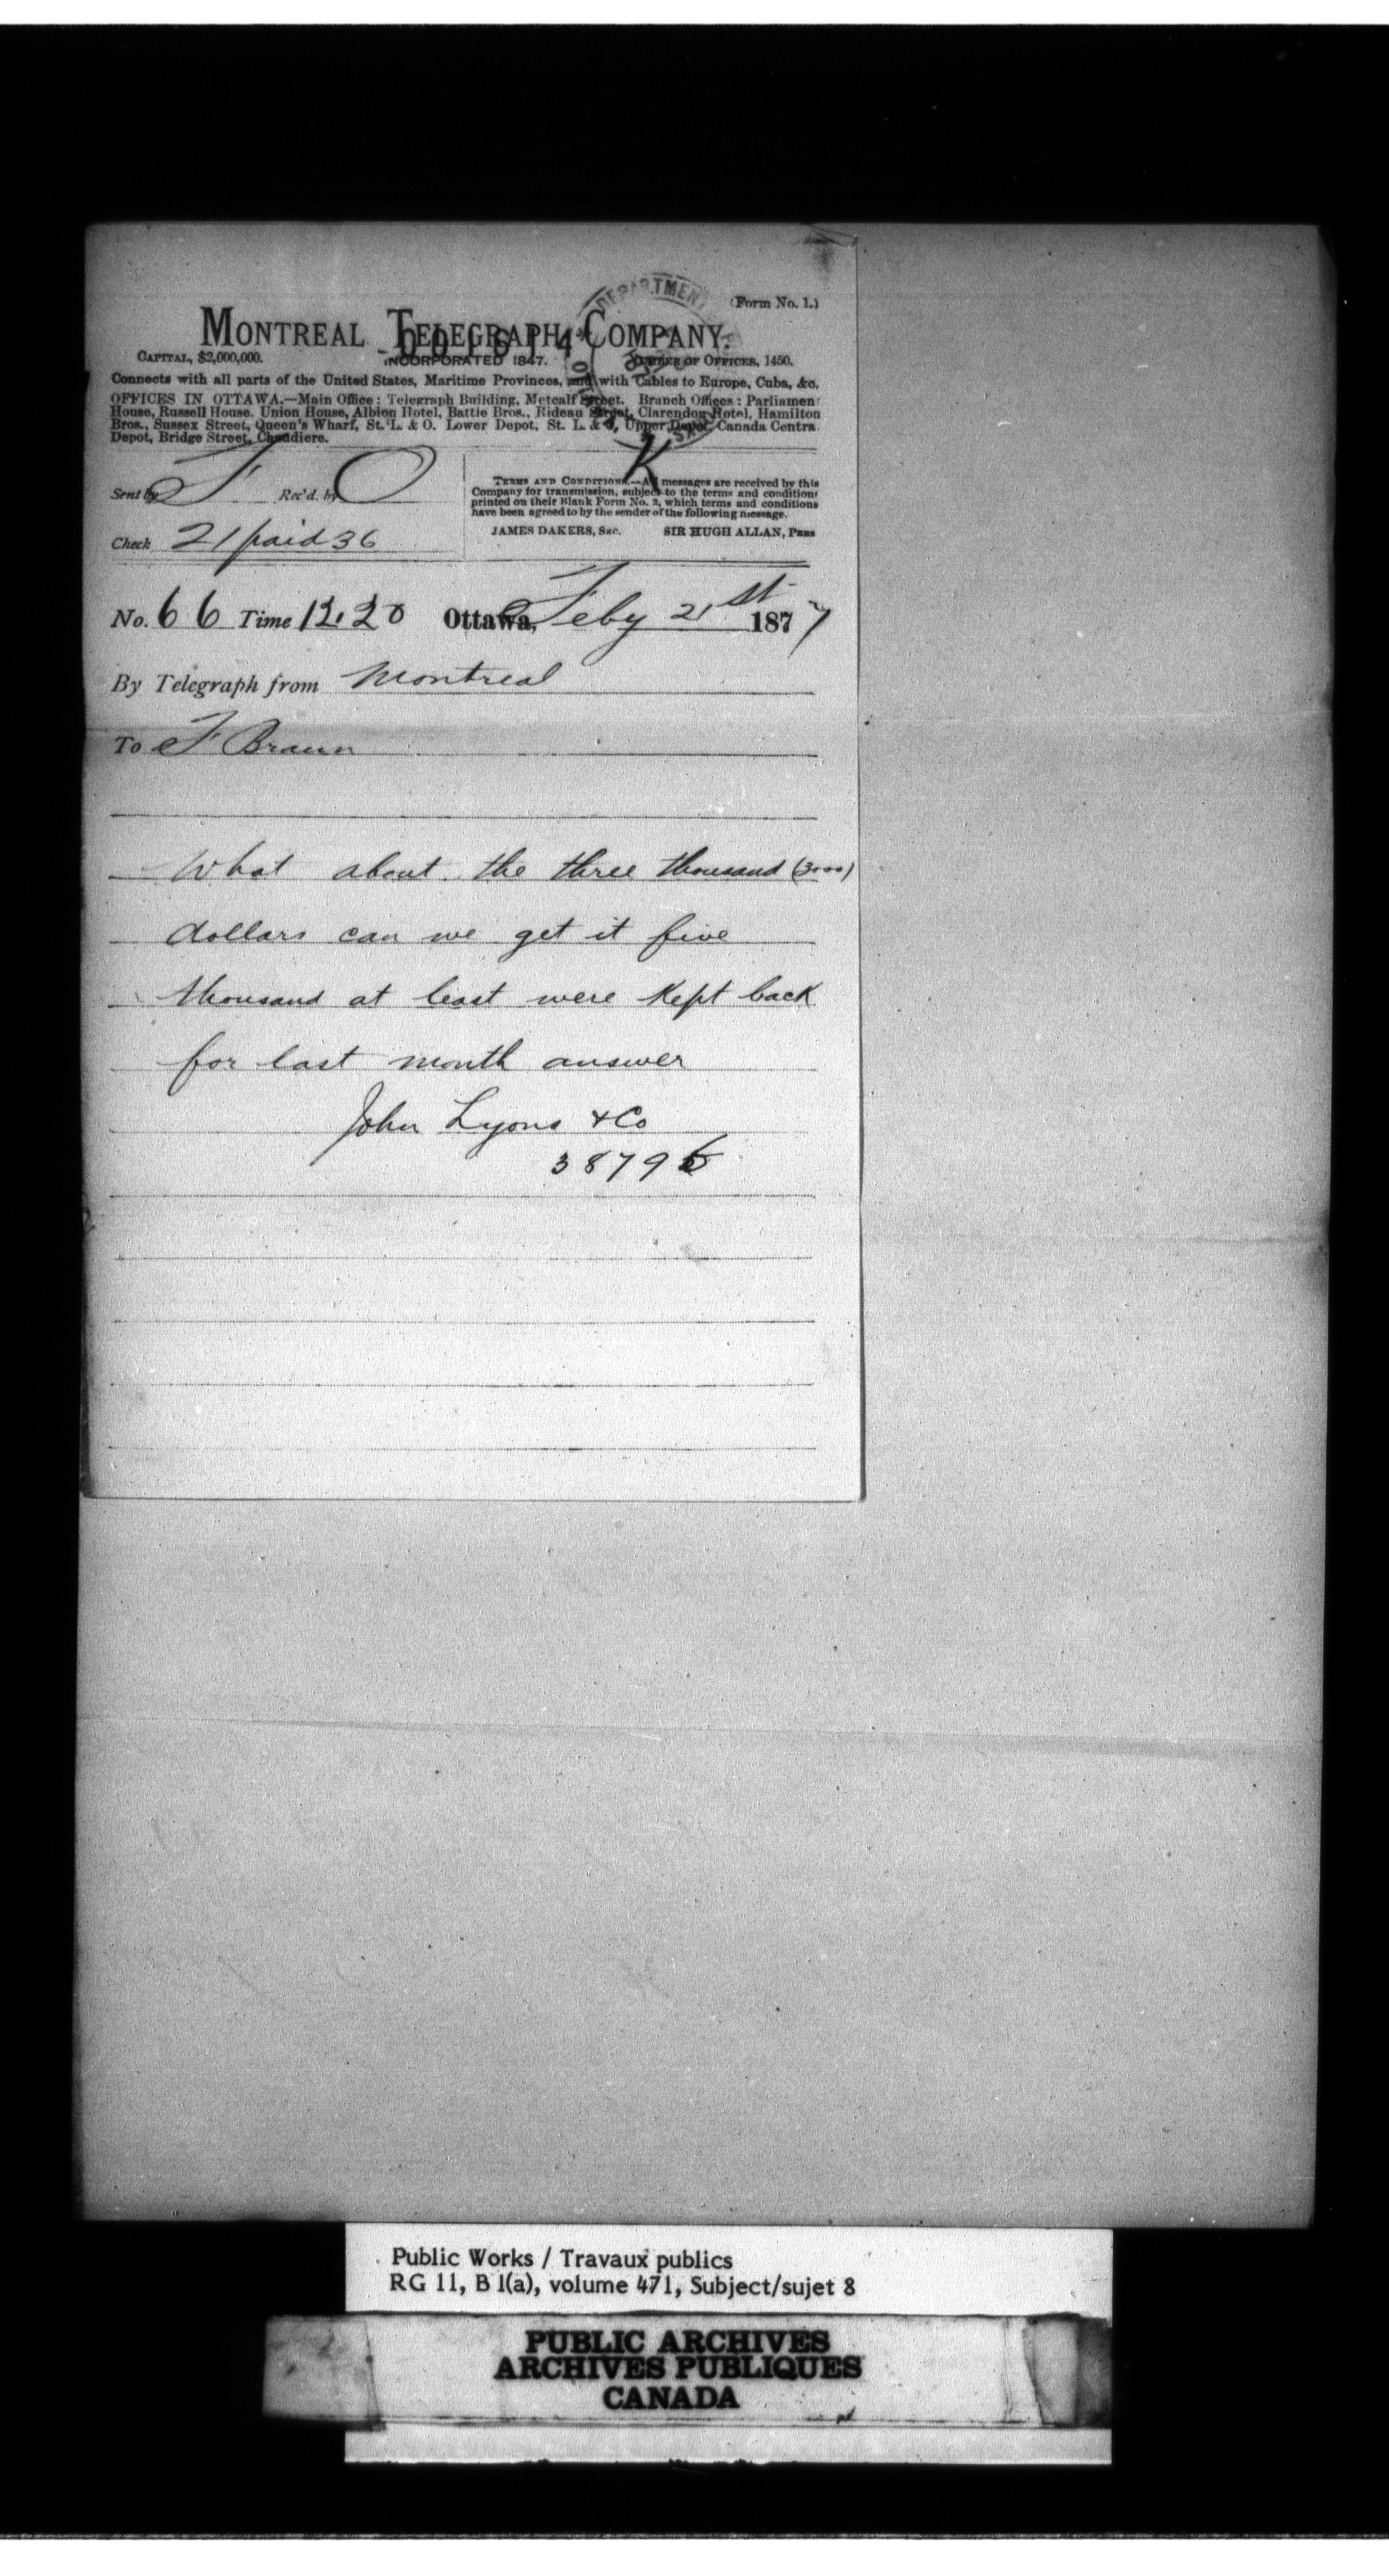 (Form No. 1.)
MONTREAL TELEGRAPH COMPANY.
001614
CAPITAL, $2,000,000. INCORPORATED 1847. NUMBER OF OFFICES, 1450.
Connects with all parts of the United States, Maritime Provinces, and with Cables to Europe, Cuba, &c.
OFFICES IN OTTAWA.—Main Office: Telegraph Building, Metcalf Street. Branch Offices: Parliament
House, Russell House, Union House, Albion Hotel, Battle Bros., Rideau Street, Clarendon Hotel, Hamilton
Bros., Sussex Street, Queen's Wharf, St. L. & O. Lower Depot, St. L. & O, Upper Depot, Canada Centra
Depot, Bridge Street, Chaudiere.
DEPARTMENT
K
Sent by F Rec'd. by O
Check 21 paid 36
TERMS AND CONDITIONS.—All messages are received by this
Company for transmission, subject to the terms and conditions
printed on their Blank Form No. 2, which terms and conditions
have been agreed to by the sender of the following message.
JAMES DAKERS, SEC. SIR HUGH ALLAN, PRES
No. 66 Time 12.20 Ottawa, Feby 21st 1877
By Telegraph from Montreal
To F Braun
What about the three thousand (3000)
dollars can we get it five
thousand at least were kept back
for last month answer
John Lyons & Co
3879
Public Works / Travaux publics
RG 11, B 1(a), volume 471, Subject/sujet 8
PUBLIC ARCHIVES
ARCHIVES PUBLIQUES
CANADA